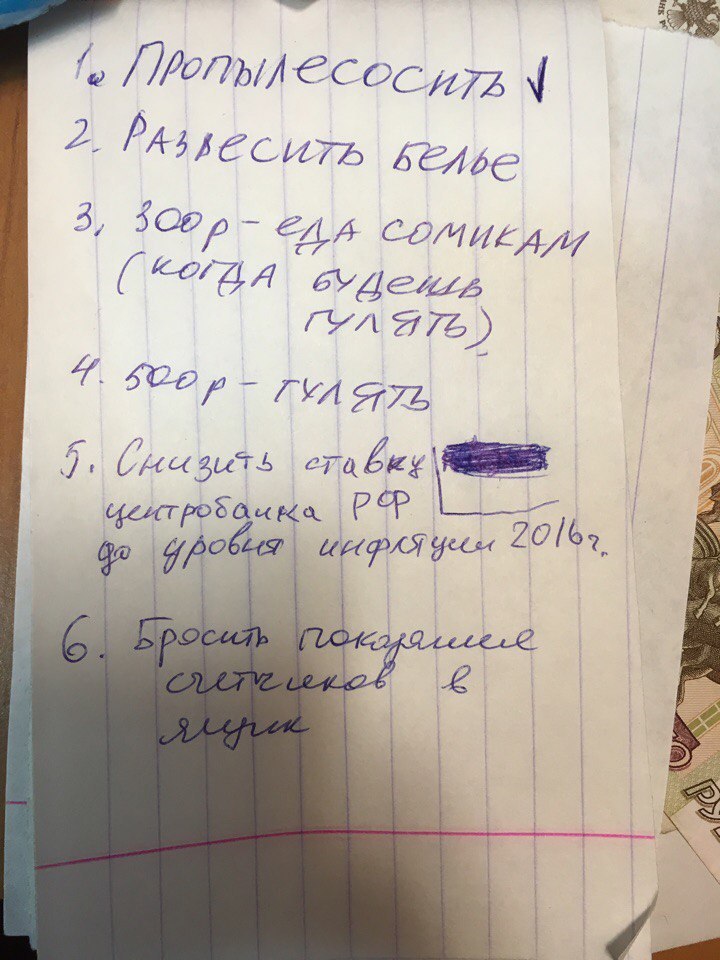 1. Пропылесосить ✓
2. Развесить белье
3. 300р - еда сомикам
(когда будешь
гулять)
4. 500р - гулять
5. Снизить ставку
центробанка РФ
до уровня инфляции 2016г.
6. Бросить показание
счетчиков в
ящик